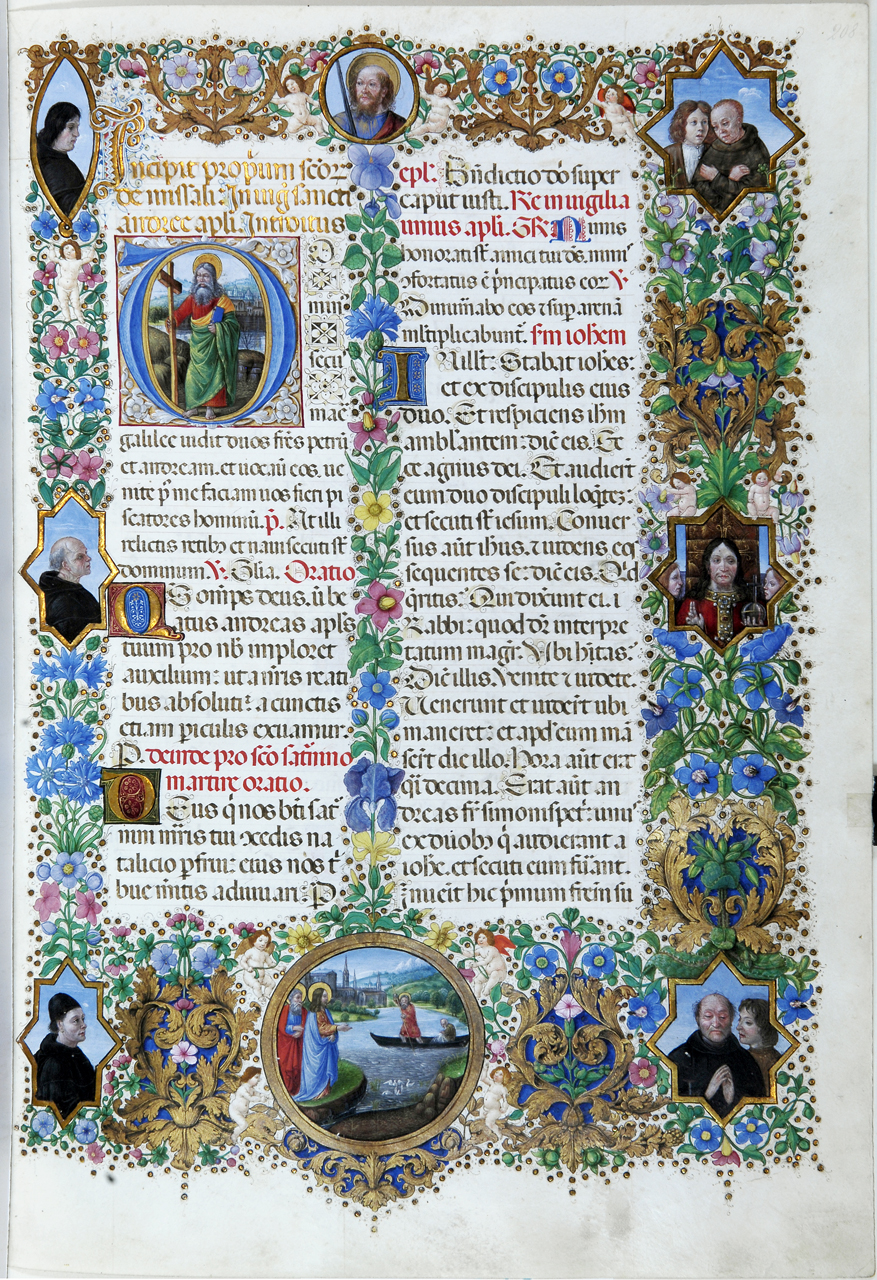 Incipit proprium scōr
de missali. In uig̃ sancti
andree apli. Introitus
O
min'
secu'
mare
galilee uidit duos frēs petrū
et andream. et uocauit eos. ue
nite p' me faciam uos fieri pi
scatores hominū. p̄. At illi
relictis retibꝰ et naui secuti sī
dominum. V. Glia. Oratio
Q S omīps deus. ū be
atus andreas apl's
tuum pro nb' imploret
auxilium: ut a nr̄is reati
bus absoluti: a cunctis
etiam piculis exuamur.
P. deinde pro scō satīnino
martire oratio.
D Eus q' nos bt̄i sat'
nini mr̄is tui ꝯcedis na
talicio pfrui: eius nos t'
bue mītis adiuuari: P
epl'. Bn̄dictio dn̄i super
caput iusti. Re in uigilia
unius apli. GR. Nimis
honorati sī. amici tui ds. nimi'
ꝯfortatus ē p'ncipatus eor' V.
Dinumabo eos ⁊ sup. arenā
mltiplicabunt'. sm̄ iohem
I N illo t'. Stabat iohēs:
et ex discipulis eius
duo. Et respiciens ihm
amblantem: dic̄ eis. Ec
ce agnus dei. Et audier̄t
eum duo discipuli loq̄ntez:
et secuti sī iesum. Conuer
sus aūt ihus. ⁊ uidens eos
sequentes se: dic̄ eis. Qd
q̄ritis. Qui dixerunt ei. i
Rabbi: quod dr̄ interpre
tatum magr̄. Vbi hitas:
Dic̄ illis. Venite ⁊ uidete.
Venerunt et uider̄t ubi
maneret: et apd' eum mā
ser̄t die illo. Hora aūt erat
q̄i decima. Erat aūt an
dreas fr̄ simonis pet': unu'
ex duobꝰ q' audierant a
iohe. et secuti eum fuerant.
Inueīt hic p'mum frēm su